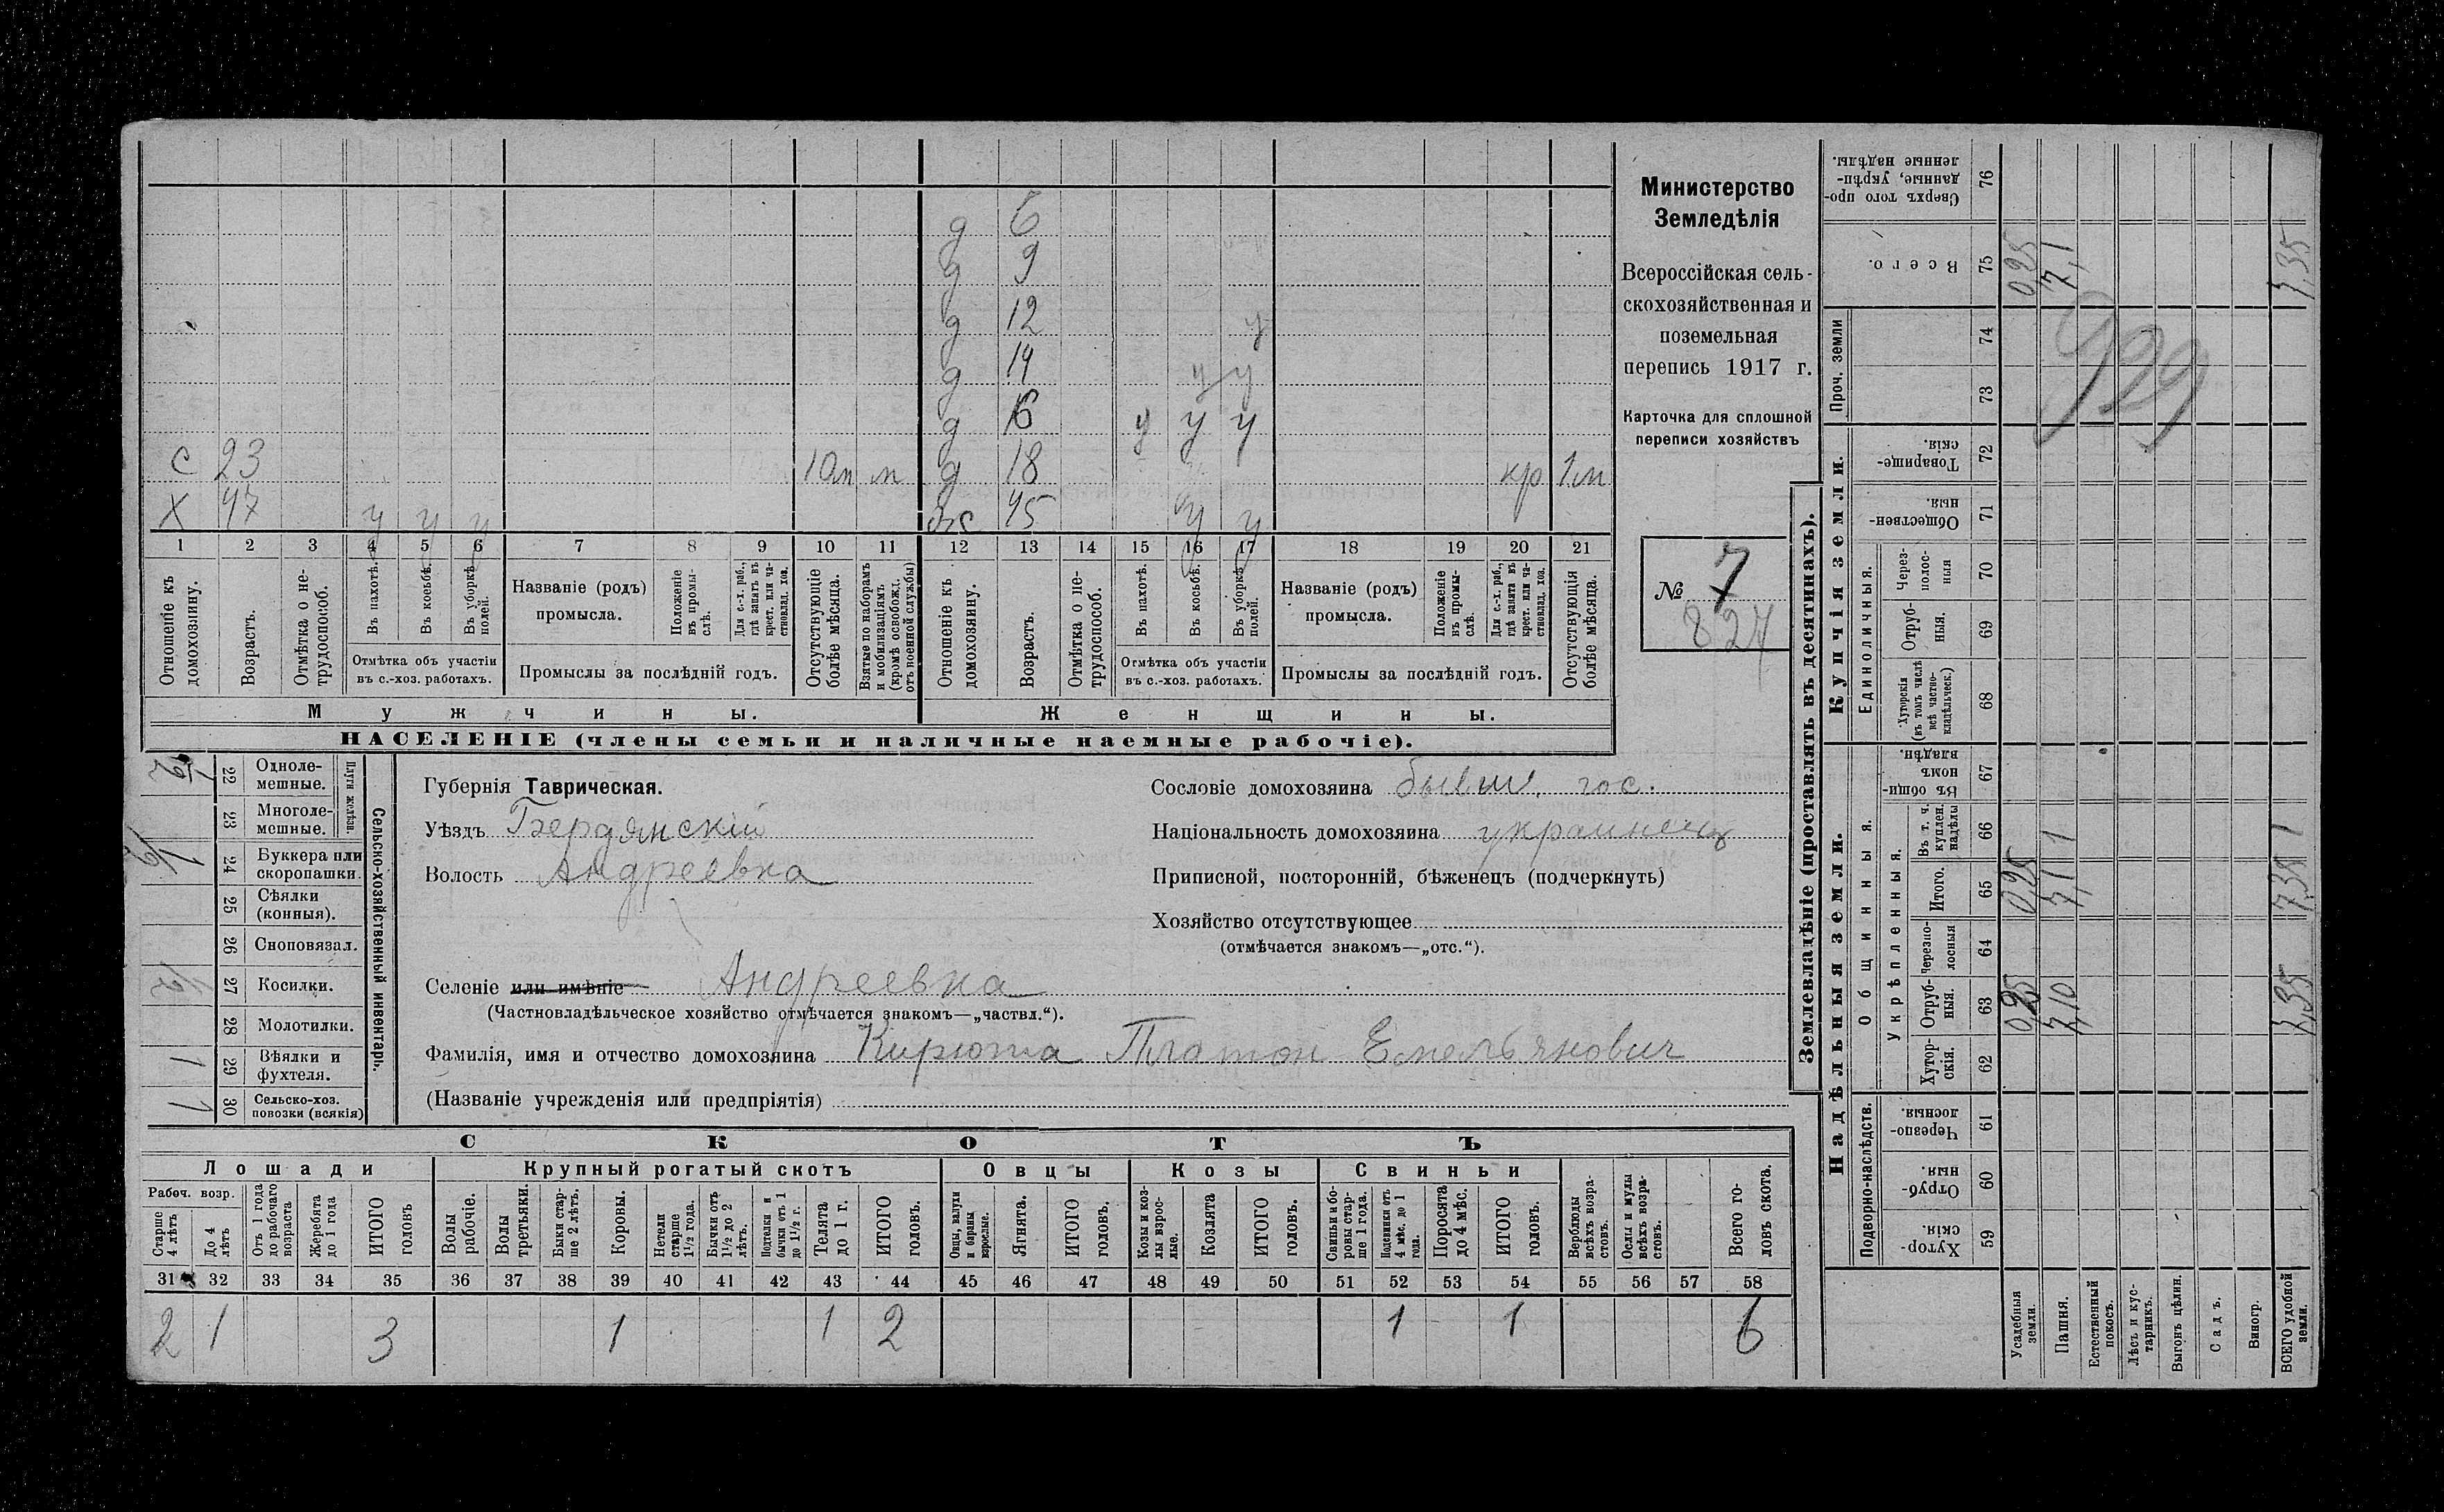 д 6
д 9
д 12 у
д 14 у у
д 16 у у у
С 23 10м м д 18 кр 1м
Х 47 у у у ж 45 у у
1 2 3 4 5 6 7 8 9 10 11 12 13 14 15 16 17 18 19 20 21
Отношеніе къ домохозяину.
Возрастъ.
Отмѣтка о не-
трудоспособ.
Въ пахотѣ.
Въ косьбѣ.
Въ уборкѣ
полей.
Отмѣтка объ участіи
въ с.-хоз. работахъ.
Названіе (родъ)
промысла.
Положеніе
въ промы-
слѣ.
Для с.-х. раб.,
гдѣ занятъ въ
крест. или ча-
стновлад. хоз.
Промыслы за послѣдній годъ.
Отсутствующіе
болѣе мѣсяца.
Взятые по наборамъ
и мобилизаціямъ
(кромѣ освобожд.
отъ военной службы)
Отношеніе къ
домохозяину.
Возрастъ.
Отмѣтка о не-
трудоспособ.
Въ пахотѣ.
Въ косьбѣ.
Въ уборкѣ
полей.
Отмѣтка объ участіи
въ с.-хоз. работахъ.
Названіе (родъ)
промысла.
Положеніе
въ промы-
слѣ.
Для с.-х. раб.,
гдѣ занята въ
крест. или ча-
стновлад. хоз.
Промыслы за послѣдній годъ.
Отсутствующія
болѣе мѣсяца.
Мужчины. Женщины.
НАСЕЛЕНІЕ (члены семьи и наличные наемные рабочіе).
Министерство
Земледѣлія
Всероссійская сель-
скохозяйственная и
поземельная
перепись 1917 г.
Карточка для сплошной
переписи хозяйствъ
№ 7
827
Сельско-хозяйственный инвентарь.
Плуги желѣзн.
22 Одноле-
мешные.
23 Многоле-
мешные.
1/2 24 Буккера или
скоропашки.
25 Сѣялки
(конныя).
26 Сноповязал.
1/2 27 Косилки.
28 Молотилки.
1 29 Вѣялки и
фухтеля.
1 30 Сельско-хоз.
повозки (всякія)
Губернія Таврическая.
Уѣздъ Бердянскій
Волость Андреевка
Селеніе или имѣніе Андреевка
(Частновладѣльческое хозяйство отмѣчается знакомъ—„частвл.“).
Фамилія, имя и отчество домохозяина Кирюта Платон Емельянович
(Названіе учрежденія или предпріятія)
Сословіе домохозяина бывш. гос.
Національность домохозяина украинецъ
Приписной, посторонній, бѣженецъ (подчеркнуть)
Хозяйство отсутствующее
(отмѣчается знакомъ—„отс.“).
СКОТЪ
Лошади Крупный рогатый скотъ Овцы Козы Свиньи
Рабоч. возр.
Старше
4 лѣтъ
До 4
лѣтъ
Отъ 1 года
до рабочаго
возраста
Жеребята
до 1 года
ИТОГО
головъ
Волы
рабочіе.
Волы
третьяки.
Быки стар-
ше 2 лѣтъ.
Коровы.
Нетели
старше
1½ года.
Бычки отъ
1½ до 2
лѣтъ.
Подтелки и
бычки отъ 1
до 1½ г.
Телята
до 1 г.
ИТОГО
головъ.
Овцы, валухи
и бараны
взрослые.
Ягнята.
ИТОГО
головъ.
Козы и коз-
лы взрос-
лые.
Козлята
ИТОГО
головъ.
Свиньи и бо-
ровы стар-
ше 1 года.
Подсвинки отъ
4 мѣс. до 1
года.
Поросята
до 4 мѣс.
ИТОГО
головъ.
Верблюды
всѣхъ возра-
стовъ.
Ослы и мулы
всѣхъ возра-
стовъ.
Всего го-
ловъ скота.
31 32 33 34 35 36 37 38 39 40 41 42 43 44 45 46 47 48 49 50 51 52 53 54 55 56 57 58
2 1 3 1 1 2 1 1 6
Землевладѣніе (проставлять въ десятинахъ).
Надѣльныя земли. Купчія земли.
Проч. земли
Подворно-наслѣдств.
Общинныя.
Укрѣпленныя.
Единоличныя.
Сверхъ того про-
данные, укрѣп-
ленные надѣлы.
76
Всего.
75 0,25 7,1 7,35
74
73
929
Товарище-
скія.
72
Обществен-
ныя.
71
Через-
полос-
ныя
70
Отруб-
ныя.
69
Хуторскія
(въ томъ числѣ
всѣ частно-
владѣльческ.)
68
Въ общи-
номъ
владѣн.
67
Въ т. ч.
куплен.
надѣлы
66 1 1
Итого.
65 0,25 7,1 7,35
Черезпо-
лосныя
64
Отруб-
ныя.
63 0,25 7,10 7,35
Хутор-
скія.
62
Черезпо-
лосныя.
61
Отруб-
ныя.
60
Хутор-
скія.
59
Усадебныя
земли.
Пашня.
Естественный
покосъ.
Лѣсъ и кус-
тарникъ.
Выгонъ цѣлин.
Садъ.
Виногр.
ВСЕГО удобной
земли.